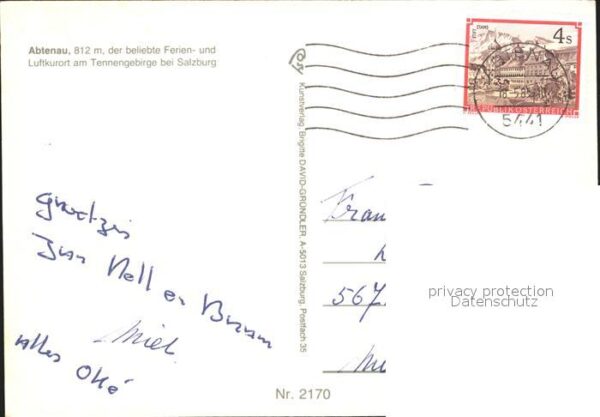 Abtenau, 812 m, der beliebte Ferien- und
Luftkurort am Tennengebirge bei Salzburg
4s
REPUBLIK ÖSTERREICH
5441
Kunstverlag Brigitte DAVID-GRÜNDLER, A-5013 Salzburg, Postfach 35
groetjes
Nell en
Miel
alles Oké
Frau
567
privacy protection
Datenschutz
Nr. 2170